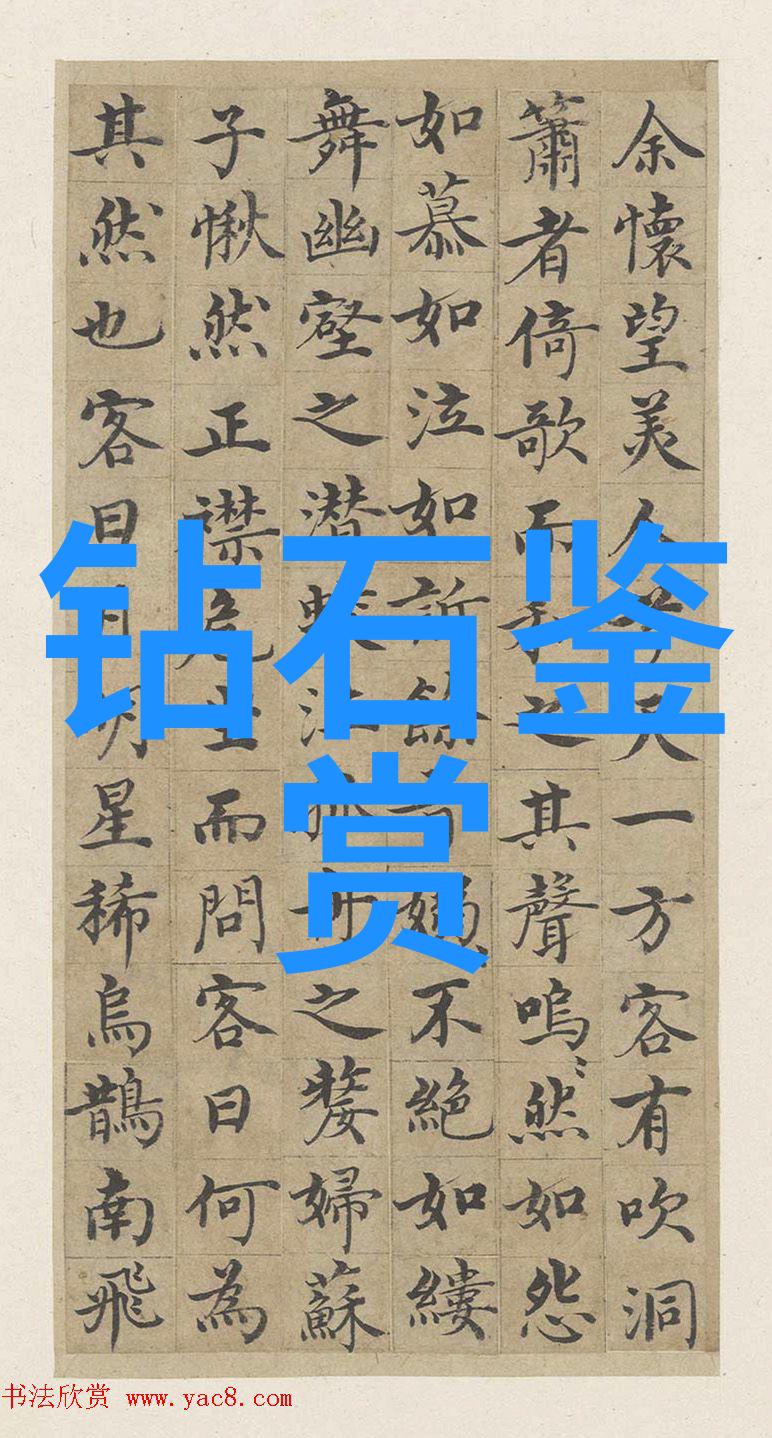 余懷望美人兮天一方客有吹洞
簫者倚歌而和之其聲嗚〻然如怨
如慕如泣如訴餘音嫋〻不絕如縷
舞幽壑之潛蛟泣孤舟之嫠婦蘇
子愀然正襟危坐而問客曰何為
其然也客曰月明星稀烏鵲南飛
钻石鉴
赏
书法欣赏 www.yac8.com